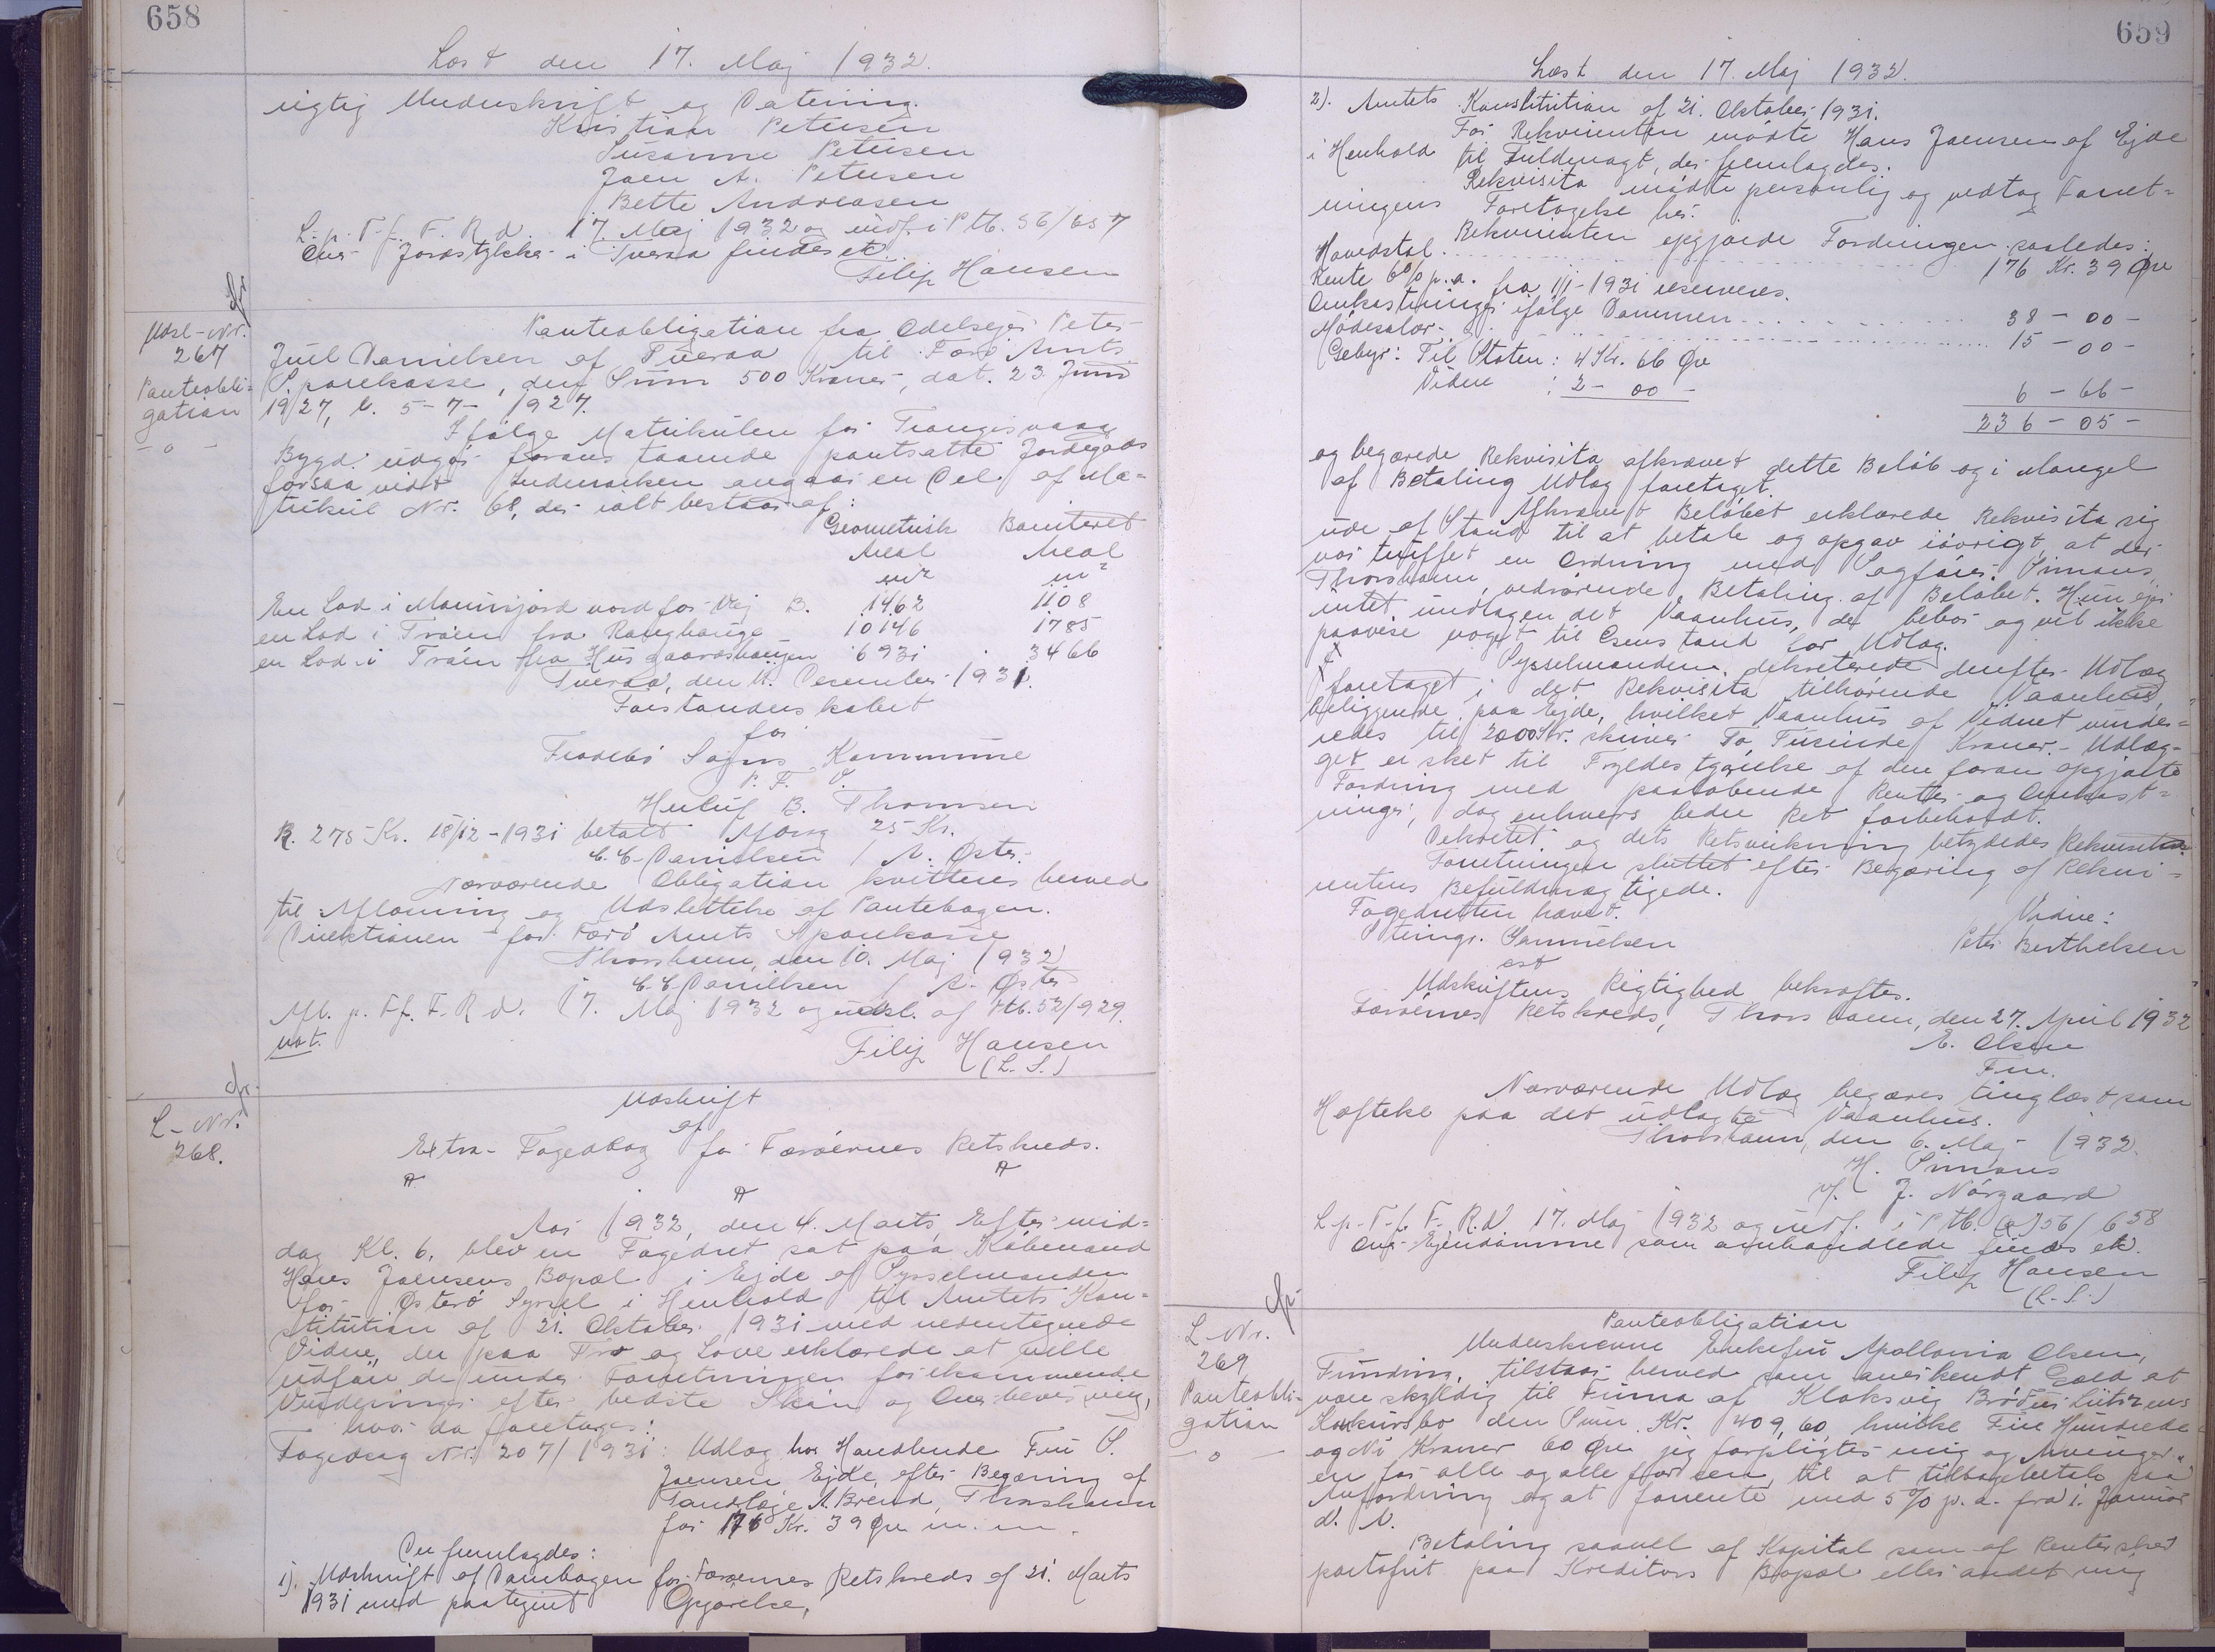 658
Læst den 17. Maj 1932.
rigtig Underskrift og Datering.
Kristian Petersen
Susanne Petersen
Joen A. Petersen
Bette Andreasen
L. p. T. f. F. R. d. 17. Maj 1932 og indf. i Ptb. 56/657
Ang. Jordstykke i Tveraa findes et
Filip Hansen
Udsl-Nr.
267
Panteobli-
gation
- o -
Panteobligation fra Odelsejer Peter
Juul Danielsen af Tveraa til Færø Amts
Sparekasse, den Sum 500 Kroner, dat. 23 Juni
1927, l. 5-7-1927.
Ifølge Matrikulen for Trangisvaag
Bygd udgør foranstaaende pantsatte Jordegods
forsaavidt Indmarken angaar en Del af Ma-
trikul Nr. 68, der ialt bestaar af:
Geometrisk Boniteret
Areal Areal
m² m²
En Lod i nord for Vej B. 1462 1108
en Lod i Trøen fra 10146 1785
en Lod i Trøin fra Husgaardshaugen 6931 3466
Tveraa, den 11. December 1931.
Forstanderskabet
for
Frodebø Sogns Kommune
P. F. V.
Herluf B. Thomsen
R. 275 Kr. 18/12-1931 betalt 25 Kr.
C. C. Danielsen / A. Øster
Nærværende Obligation kvitteres herved
til Aflæsning og Udslettelse af Pantebogen.
Direktionen for Færø Amts Sparekasse
Thorshavn, den 10. Maj 1932
C. C. Danielsen / A. Øster
Afl. p. T. f. F. R. d. 17. Maj 1932 og udsl. af Ptb. 52/929.
Filip Hansen
(L. S.)
L-Nr.
268.
Udskrift
af
Extra-Fogedbog for Færøernes Retskreds.
Aar 1932, den 4. Marts, Eftermid-
dag Kl. 6, blev en Fogedret sat paa Købmand
Hans Joensens Bopæl i Ejde af Sysselmanden
for Østerø Syssel i Henhold til Amtets Kon-
stitution af 21. Oktober 1931 med undertegnede
Vidne, der paa Tro og Love erklærede at ville
udføre de under Forretningen forekommende
Vurderinger efter bedste Skøn og Overbevisning,
hvor da foretoges:
Fogedsag Nr. 207/1931: Udlæg hos Handlende Fru S.
Joensen Ejde efter Begæring af
Tandlæge A. Brend, Thorshavn
for 176 Kr. 39 Øre m. m.
Der fremlagdes:
1). Udskrift af Dombogen for Færøernes Retskreds af 21. Marts
1931 med paategnet Opgørelse,
659
Læst den 17. Maj 1932.
2). Amtets Konstitution af 21. Oktober 1931.
For Rekvirenten mødte Hans Joensen af Ejde
i Henhold til Fuldmagt, der fremlagdes.
Rekvisita mødte personlig og vedtog Forret-
ningens Foretagelse her.
Rekvirenten opgjorde Fordringen saaledes:
Hovedstol 176 Kr. 39 Øre
Rente 6% p. a. fra 1/1-1931 reserveres.
Omkostninger ifølge Dommen 38 - 00 -
Mødesalær 15 - 00 -
Gebyr: Til Staten: 4 Kr. 66 Øre
Vidne : 2 - 00 -
6 - 66 -
236 - 05 -
og begærede Rekvisita afkrævet dette Beløb og i Mangel
af Betaling Udlæg foretaget.
Afkrævet Beløbet erklærede Rekvisita sig
ude af Stand til at betale og opgav iøvrigt, at der
var truffet en Ordning med Sagfører Simons,
Thorshavn, vedrørende Betaling af Beløbet. Hun ejer
intet undtagen det Vaanhus, der bebos og vil ikke
paavise noget til Genstand for Udlæg.
Sysselmanden dekreterede derefter Udlæg
foretaget i det Rekvisita tilhørende Vaanhus,
beliggende paa Ejde, hvilket Vaanhus af Vidnet vurde-
redes til 2000 Kr. skriver To Tusinde Kroner.- Udlæg-
get er sket til Fyldestgørelse af den foran opgjorte
Fordring med paaløbende Renter og Omkost-
ninger, dog enhvers bedre Ret forbeholdt.
Dekretet og dets Retsvirkning betydedes Rekvisita.
Forretningen sluttet efter Begæring af Rekvi-
rentens Befuldmægtigede.
Fogedretten hævet.
Vidne:
Steingr. Samuelsen Peter Berthelsen
cst
Udskriftens Rigtighed bekræftes.
Færøernes Retskreds, Thorshavn, den 27. April 1932
E. Olsen
Fm.
Nærværende Udlæg begæres tinglæst som
Hæftelse paa det udlagte Vaanhus.
Thorshavn, den 6. Maj 1932.
H. Simons
J. Nørgaard
L. p. T. f. F. R. d. 17. Maj 1932 og indf. i Ptb. (a) 56/658
Ang. Ejendomme som omhandlede findes et.
Filip Hansen
(L. S.)
L-Nr.
269
Panteobli-
gation
- o -
Panteobligation
Underskrevne Enkefru Apollonia Olsen,
Funding, tilstaar herved som anerkendt Gæld at
være skyldig til Firma af Klaksvig Brødrene Lützens
Konkursbo den Sum Kr. 409,60, hvilke Fire Hundrede
og Ni Kroner 60 Øre jeg forpligter mig og Arvinger,
en for alle og alle for een, til at tilbagebetale paa
Anfordring og at forrente med 5% p. a. fra 1. Januar
d. A.
Betaling saavel af Kapital som af Renter sker
portofrit paa Kreditors Bopæl eller andet mig